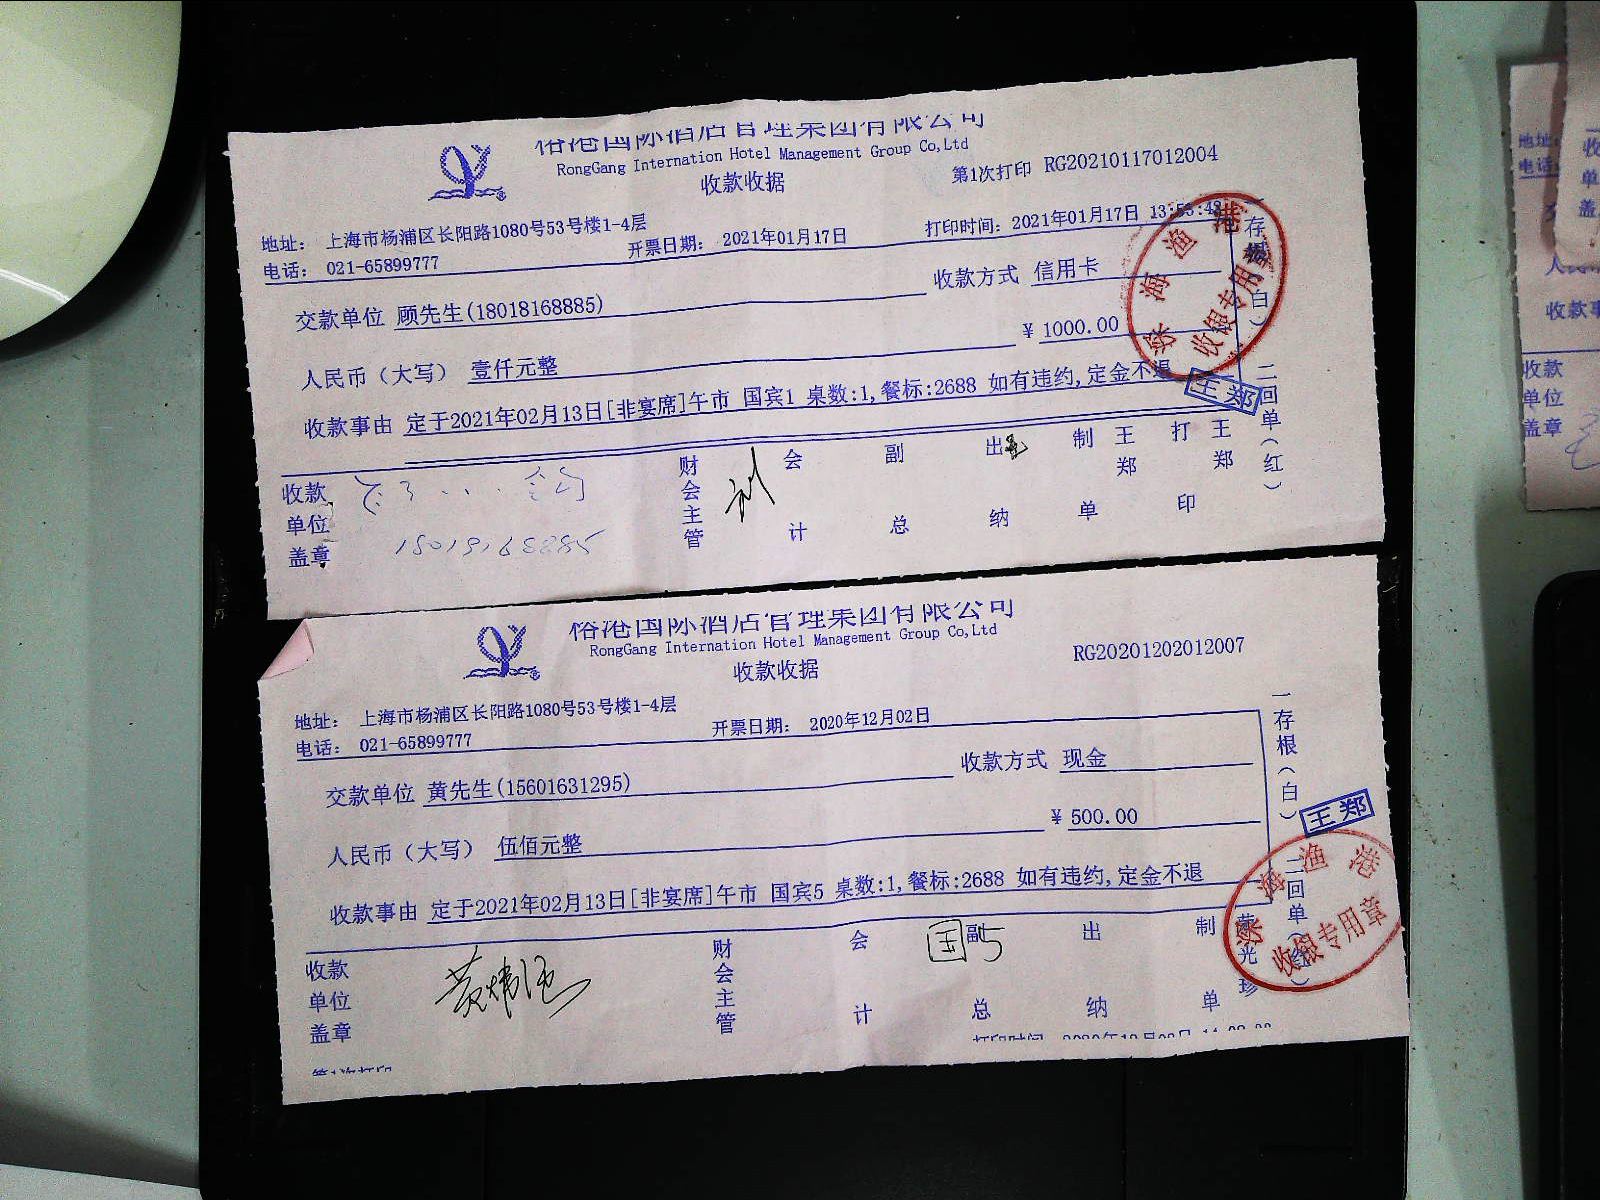 俗港国际酒店管理集团有限公司
RongGang Internation Hotel Management Group Co,Ltd
收款收据
第1次打印 RG20210117012004
地址： 上海市杨浦区长阳路1080号53号楼1-4层
电话： 021-65899777
开票日期： 2021年01月17日
打印时间：2021年01月17日 13:55:42
交款单位 顾先生(18018168885)
收款方式 信用卡
人民币（大写） 壹仟元整
¥ 1000.00
收款事由 定于2021年02月13日[非宴席]午市 国宾1 桌数:1,餐标:2688 如有违约,定金不退
收款单位盖章
18018168885
财会主管
会计
副总
出纳
制单
王郑
打印
王郑
一存根（白）
二回单（红）
深海渔港
收银专用章
王郑
俗港国际酒店管理集团有限公司
RongGang Internation Hotel Management Group Co,Ltd
收款收据
RG20201202012007
地址： 上海市杨浦区长阳路1080号53号楼1-4层
电话： 021-65899777
开票日期： 2020年12月02日
交款单位 黄先生(15601631295)
收款方式 现金
人民币（大写） 伍佰元整
¥ 500.00
收款事由 定于2021年02月13日[非宴席]午市 国宾5 桌数:1,餐标:2688 如有违约,定金不退
收款单位盖章
财会主管
会计
副总
国5
出纳
制单
光珍
一存根（白）
二回单（红）
王郑
深海渔港
收银专用章
第1次打印
打印时间
地址：
电话：
收款事
收款
单位
盖章